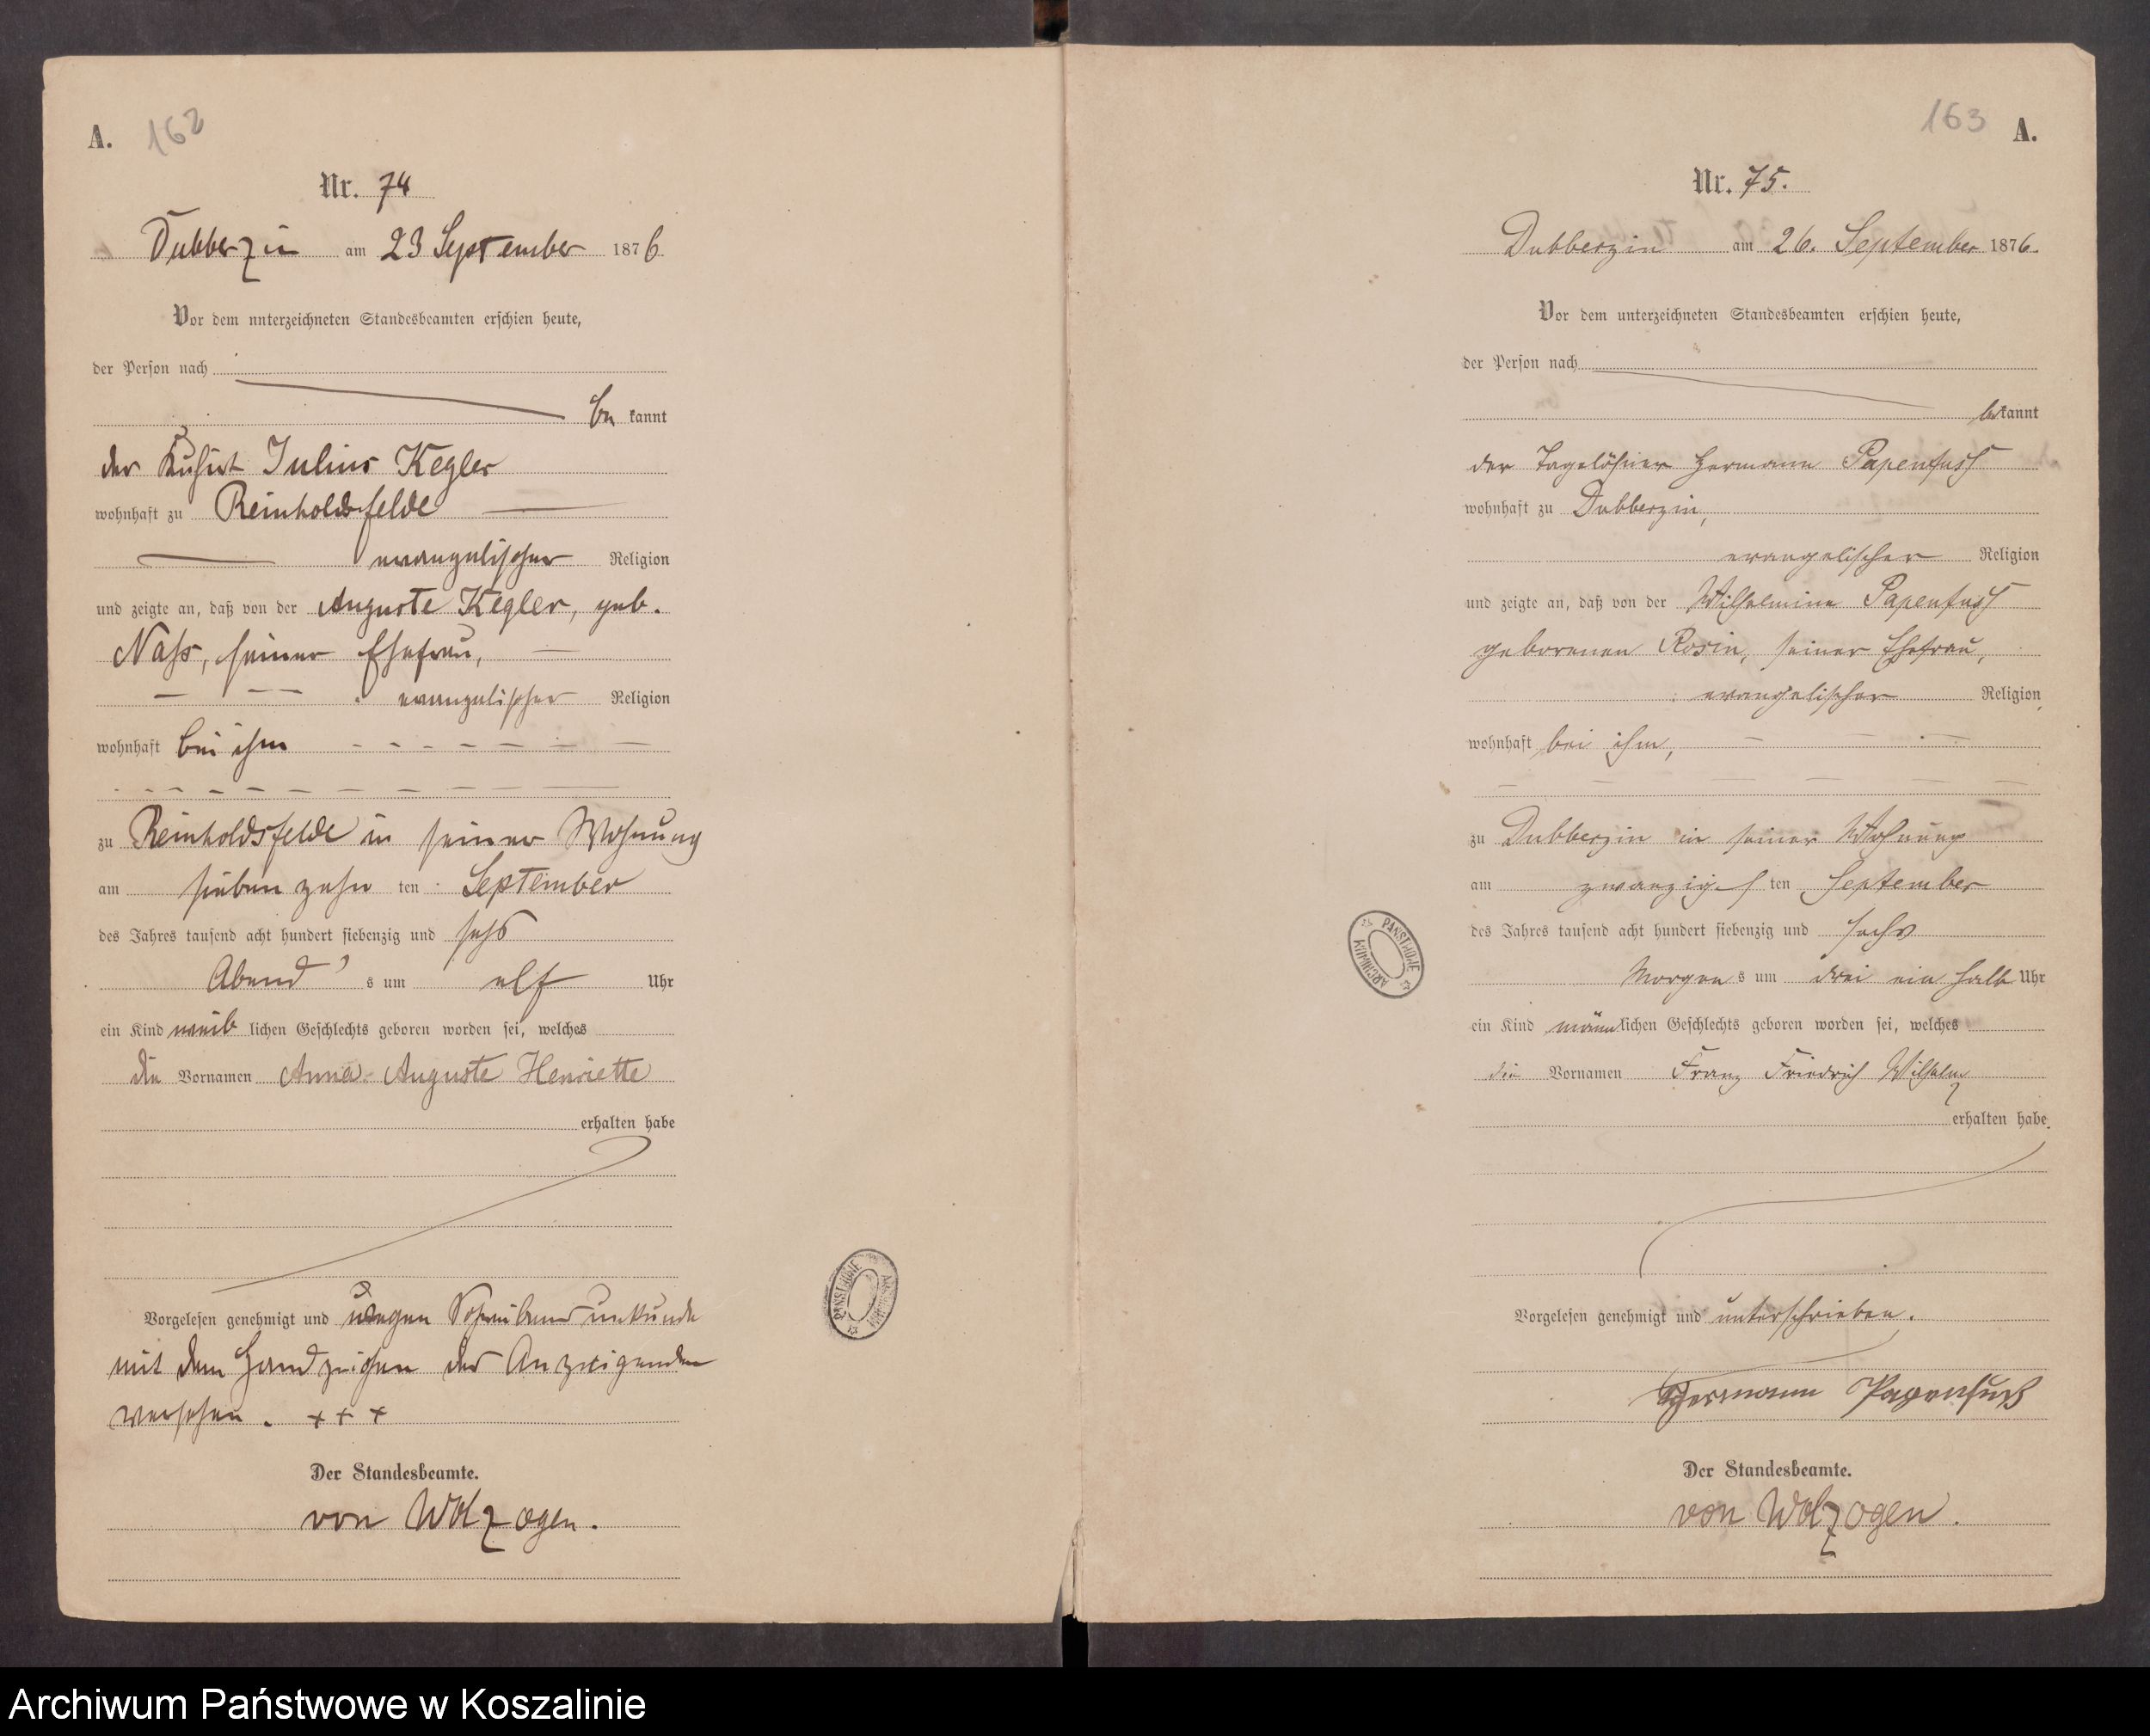 A. 162
Nr. 74
Dubberzin am 23 September 1876
Vor dem unterzeichneten Standesbeamten erschien heute,
der Person nach
be kannt
der Kuhirt Julius Kegler
wohnhaft zu Reinholdsfelde
evangelischer Religion
und zeigte an, daß von der Auguste Kegler, geb.
Nass, seiner Ehefrau,
evangelischer Religion
wohnhaft bei ihm
zu Reinholdsfelde in seiner Wohnung
am siebenzehn ten September
des Jahres tausend acht hundert siebenzig und sechs
Abend s um elf Uhr
ein Kind weib lichen Geschlechts geboren worden sei, welches
die Vornamen Anna Auguste Henriette
erhalten habe
Vorgelesen genehmigt und wegen Schreibensunkunde
mit dem Handzeichen des Anzeigenden
versehen. + + +
Der Standesbeamte.
von Wolzogen.
ARCHIWUM PAŃSTWOWE
163 A.
Nr. 75.
Dubberzin am 26. September 1876.
Vor dem unterzeichneten Standesbeamten erschien heute,
der Person nach
bekannt
der Tagelöhner Hermann Papenfuss
wohnhaft zu Dubberzin,
evangelischer Religion
und zeigte an, daß von der Wilhelmine Papenfuss
geborenen Rosin, seiner Ehefrau,
evangelischer Religion,
wohnhaft bei ihm,
zu Dubberzin in seiner Wohnung
am zwanzigs ten September
des Jahres tausend acht hundert siebenzig und sechs
Morgen s um drei ein halb Uhr
ein Kind männlichen Geschlechts geboren worden sei, welches
die Vornamen Franz Friedrich Wilhelm
erhalten habe.
Vorgelesen genehmigt und unterschrieben.
Hermann Papenfuß
Der Standesbeamte.
von Wolzogen.
ARCHIWUM PAŃSTWOWE
Archiwum Państwowe w Koszalinie